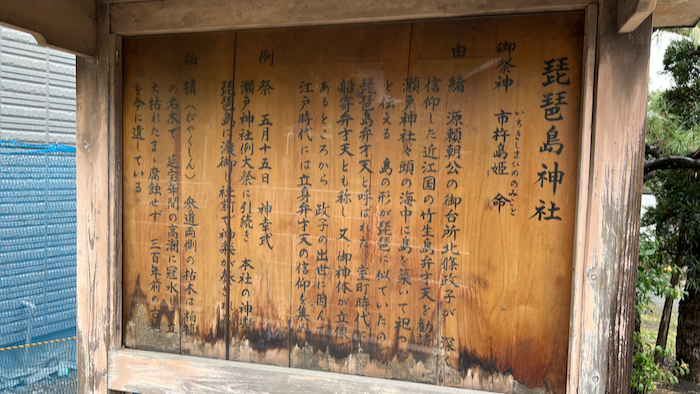 琵琶島神社
御祭神　市杵島姫　命
いちきしまひめのみこと
由緒　源頼朝公の御台所北條政子が　深く
信仰した近江国の竹生島弁才天を勧請
瀬戸神社々頭の海中に島を築いて祀っ
と伝える　島の形が琵琶に似ていたの
琵琶島弁才天と呼ばれた　室町時代
船寄弁才天とも称し　又　御神体が立像
あるところから　政子の出世に因ん
江戸時代には立身弁才天の信仰を集め
例　祭　五月十五日　神幸式
瀬戸神社例大祭に引続き　本社の神
琵琶島に渡御し社前で神楽が
柏槙（びゃくしん）　参道両側の枯木は柏槙
の名木で　延宝年間の高潮に冠水　立
ち枯れたまゝ腐蝕せず　三百年前の
を今に遺している